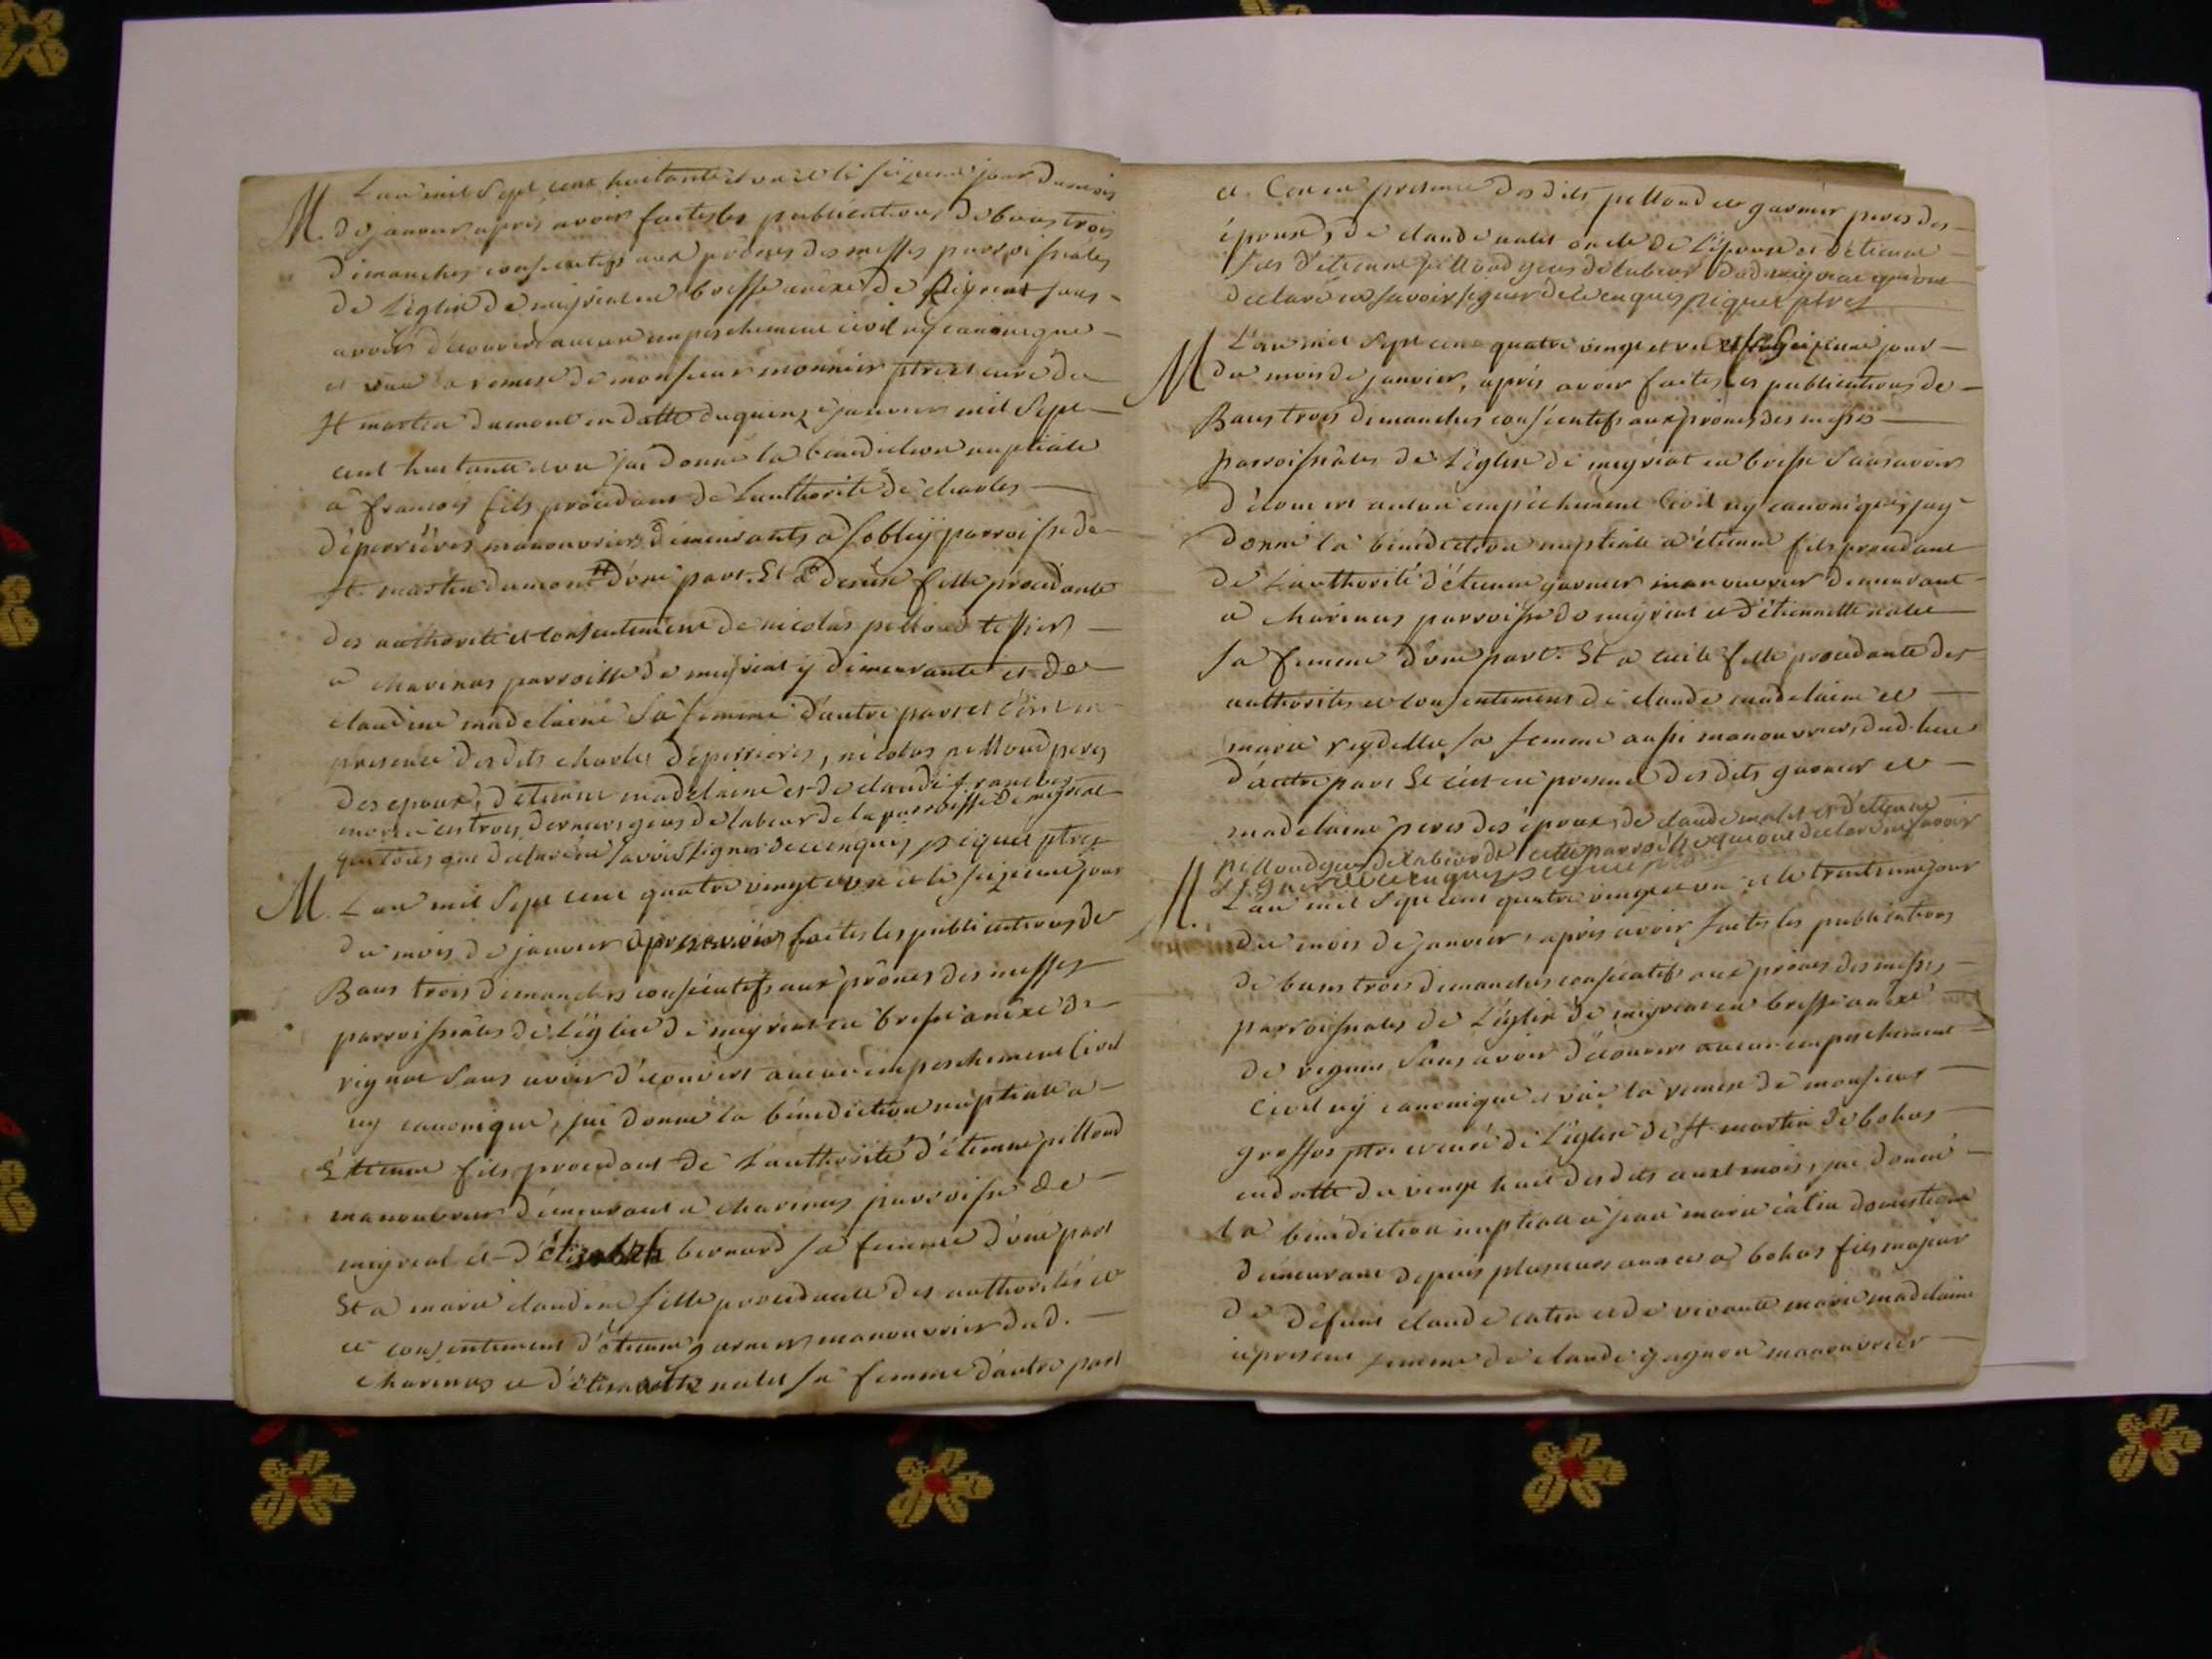 M. L'an mil Sept cent huitante et un et le seizieme jour du mois
de janvier après avoir faites les publications de bans trois
dimanches consecutifs aux prônes des messes parroissiales
de L'église de meyriat en bresse anéxe de Rignat sans
avoir découvert aucun empeschement civil ny canonique
et vue la remise de monsieur monnier ptre et curé de
St martin dumont en datte du quinze janvier mil Sept
cent huitante et un jai donné la bénédiction nuptiale
à francois fils procédant de Lauthorité de charles
déperrières manouvriers demeurants à Soblay parroisse de
St. martin dumont d'une part. Et à denise fille procédante
des authorité et consentement de nicolas pelloud tissier
à charinas parroisse de meyriat y demeurante et de
claudine madelaine Sa femme d'autre part et c'est en
presence des dits charles déperrieres, nicolas pelloud peres
des epoux, d'étienne madelaine et de claude francois
ces trois derniers gens de labeur de la parroisse de meyriat
qui tous ont déclaré ne savoir signer de ce enquis piquet ptre
M. L'an mil Sept cent quatre vingt et un et le seizieme jour
du mois de janvier après avoir faites les publications de
Bans trois dimanches consécutifs aux prônes des messes
parroissiales de L'église de meyriat en bresse anéxe de
rignat Sans avoir découvert aucun empeschement Civil
ny canonique, jai donné la bénédiction nuptiale à
Etienne fils procédant de Lauthorité d'étienne pelloud
manouvrier demeurant à charinas parroisse de
meyriat et d'élizabeth bernard sa femme d'une part
Et à marie claudine fille procédante des authorités et
et consentement d'étienne garnier manouvrier dud.
charinas et d'étiennette nalet sa femme d'autre part
et C'est en presence des dits pelloud et garnier peres des
épouse, de claude nalet oncle de L'épouse et d'étienne
fils d'étienne pelloud gens de labeur dud. meyriat qui ont
déclaré ne savoir signer de ce enquis piquet ptre
M L'an mil Sept cent quatre vingt et un et le seizieme jour
du mois de janvier, après avoir faites les publications de
Bans trois dimanches consécutifs aux prônes des messes
parroissiales de L'église de meyriat en bresse Sans avoir
découvert aucun empéchement Civil ny canonique, jay
donné la bénédiction nuptiale à étienne fils procédant
de Lauthorité d'étienne garnier manouvrier demeurant
à charinas parroisse de meyriat et d'étiennette nalet
sa femme d'une part. Et à cecile fille procédante des
authorités et consentement de claude madelaine et
marie reydellet sa femme aussi manouvriers dud. lieu
d'autre part Et c'est en presence des dits garnier et
madelaine peres des époux, de claude nalet et d'étienne
pelloud gens de labeur de cette parroisse qui ont declaré ne savoir
signer de ce enquis piquet
M. L'an mil Sept cent quatre vingt et un et le trente unjour
du mois de janvier, après avoir faites les publications
de bans trois dimanches consécutifs aux prônes des messes
parroissiales de L'église de meyriat en bresse anéxe
de rignat Sans avoir découvert aucun empeschement
Civil ny canonique et vüe la remise de monsieur
grossos ptre et curé de L'église de St. martin de bohas
en datte du vingt huit des dits an et mois, jai donné
la bénédiction nuptiale à jean marie catin domestique
demeurant depuis plusieurs années à bohas fils majeur
de défunt claude catin et de vivante marie madelaine
à present femme de claude gagnon manouvrier